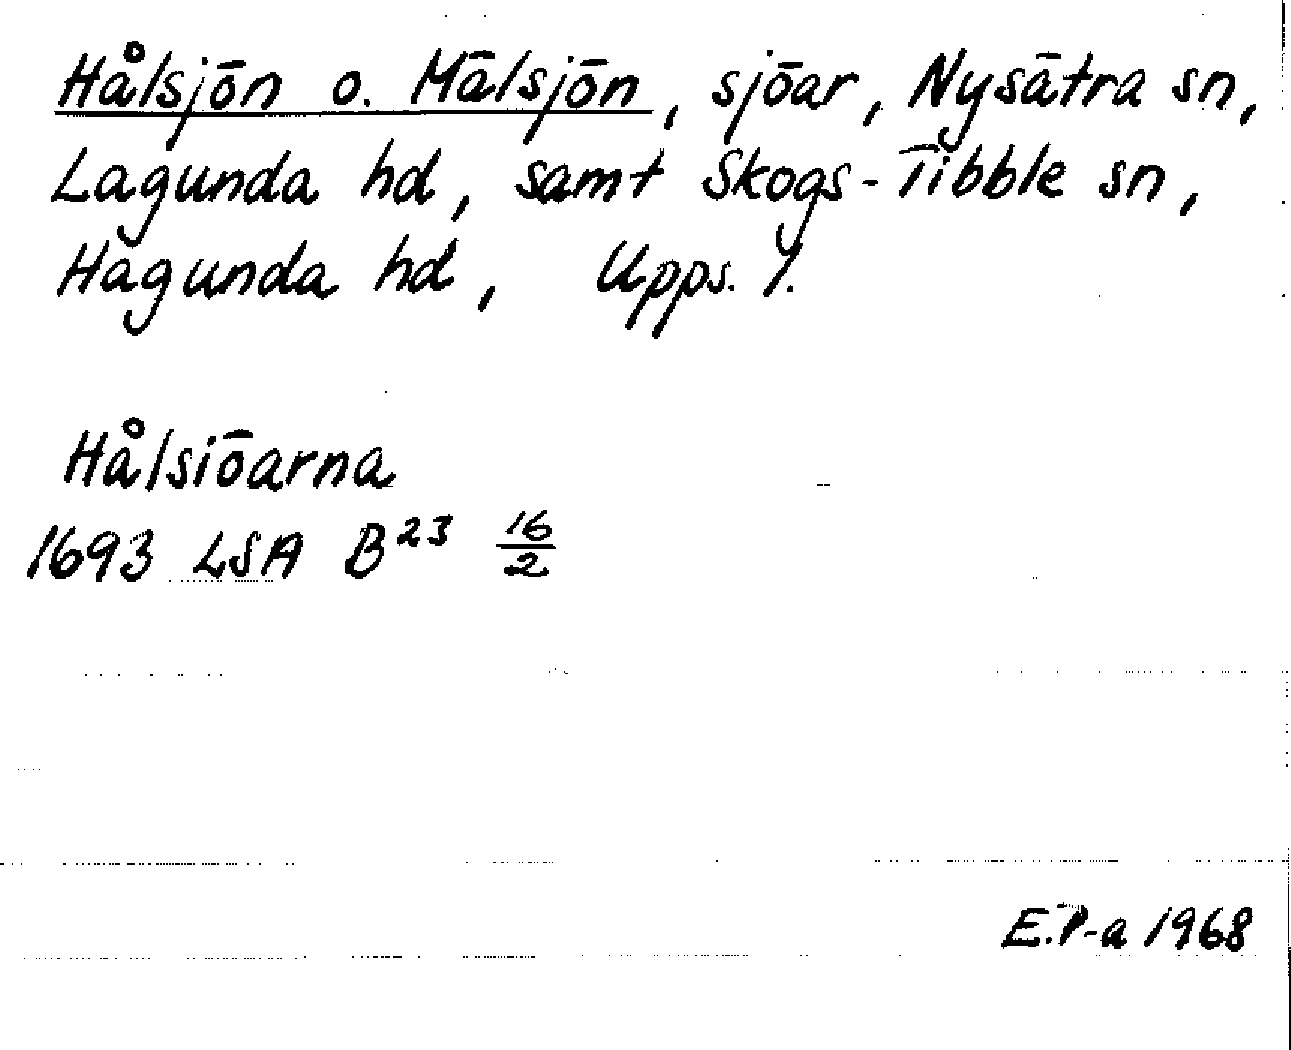 Hålsjön o. Mälsjön, sjöar, Nysätra sn,
Lagunda hd, samt Skogs-Tibble sn,
Hagunda hd, Upps. l.
Hålsiöarna
1693 LSA B²³ 16/2
E.P-a 1968